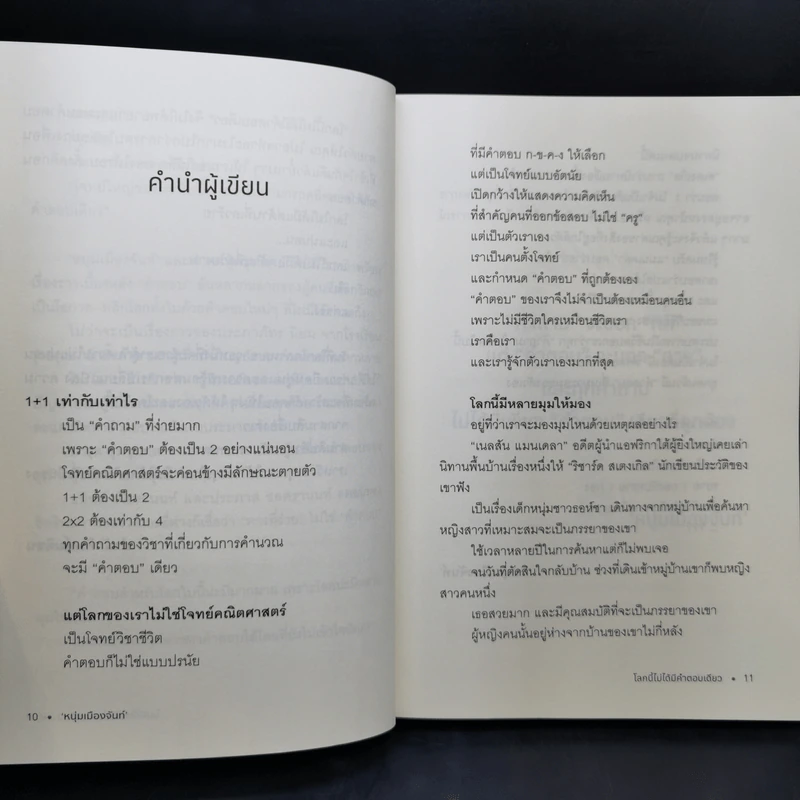 คำนำผู้เขียน
1+1 เท่ากับเท่าไร
เป็น “คำถาม” ที่ง่ายมาก
เพราะ “คำตอบ” ต้องเป็น 2 อย่างแน่นอน
โจทย์คณิตศาสตร์จะค่อนข้างมีลักษณะตายตัว
1+1 ต้องเป็น 2
2x2 ต้องเท่ากับ 4
ทุกคำถามของวิชาที่เกี่ยวกับการคำนวณ
จะมี “คำตอบ” เดียว
แต่โลกของเราไม่ใช่โจทย์คณิตศาสตร์
เป็นโจทย์วิชาชีวิต
คำตอบก็ไม่ใช่แบบปรนัย
10 • ‘หนุ่มเมืองจันท์’
ที่มีคำตอบ ก-ข-ค-ง ให้เลือก
แต่เป็นโจทย์แบบอัตนัย
เปิดกว้างให้แสดงความคิดเห็น
ที่สำคัญคนที่ออกข้อสอบ ไม่ใช่ “ครู”
แต่เป็นตัวเราเอง
เราเป็นคนตั้งโจทย์
และกำหนด “คำตอบ” ที่ถูกต้องเอง
“คำตอบ” ของเราจึงไม่จำเป็นต้องเหมือนคนอื่น
เพราะไม่มีชีวิตใครเหมือนชีวิตเรา
เราคือเรา
และเรารู้จักตัวเราเองมากที่สุด
โลกนี้มีหลายมุมให้มอง
อยู่ที่ว่าเราจะมองมุมไหนด้วยเหตุผลอย่างไร
“เนลสัน แมนเดลา” อดีตผู้นำแอฟริกาใต้ผู้ยิ่งใหญ่เคยเล่า
นิทานพื้นบ้านเรื่องหนึ่งให้ “ริชาร์ด สเตงเกิล” นักเขียนประวัติของ
เขาฟัง
เป็นเรื่องเด็กหนุ่มชาวธอห์ซา เดินทางจากหมู่บ้านเพื่อค้นหา
หญิงสาวที่เหมาะสมจะเป็นภรรยาของเขา
ใช้เวลาหลายปีในการค้นหาแต่ก็ไม่พบเจอ
จนวันที่ตัดสินใจกลับบ้าน ช่วงที่เดินเข้าหมู่บ้านเขาก็พบหญิง
สาวคนหนึ่ง
เธอสวยมาก และมีคุณสมบัติที่จะเป็นภรรยาของเขา
ผู้หญิงคนนั้นอยู่ห่างจากบ้านของเขาไม่กี่หลัง
โลกนี้ไม่ได้มีคำตอบเดียว • 11